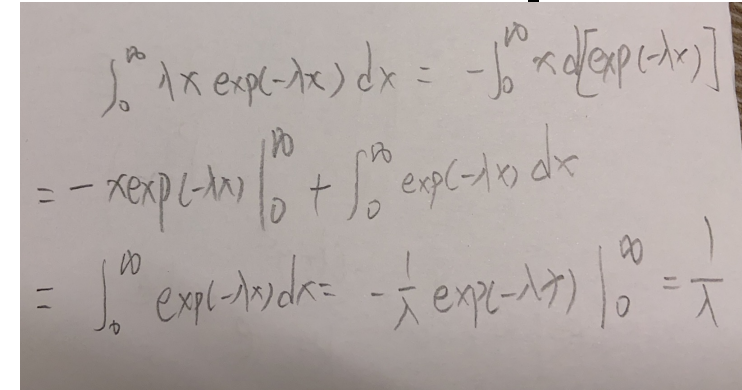 ∫₀^∞ λx exp(-λx) dx = -∫₀^∞ x d[exp(-λx)]
= -x exp(-λx) |₀^∞ + ∫₀^∞ exp(-λx) dx
= ∫₀^∞ exp(-λx) dx = -1/λ exp(-λx) |₀^∞ = 1/λ